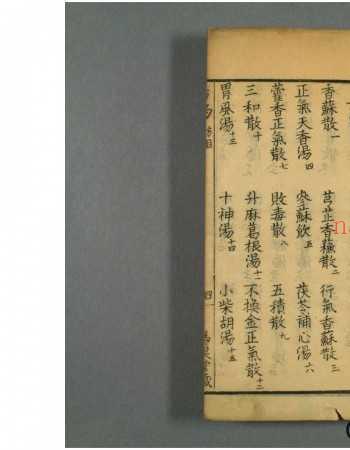 香蘇散一 芎芷香蘇散二 行氣香蘇散三
正氣天香湯四 參蘇飲五 茯苓補心湯六
藿香正氣散七 敗毒散八 五積散九
三和散十 升麻葛根湯十一 不換金正氣散十二
胃風湯十三 十神湯十四 小柴胡湯十五
目
四